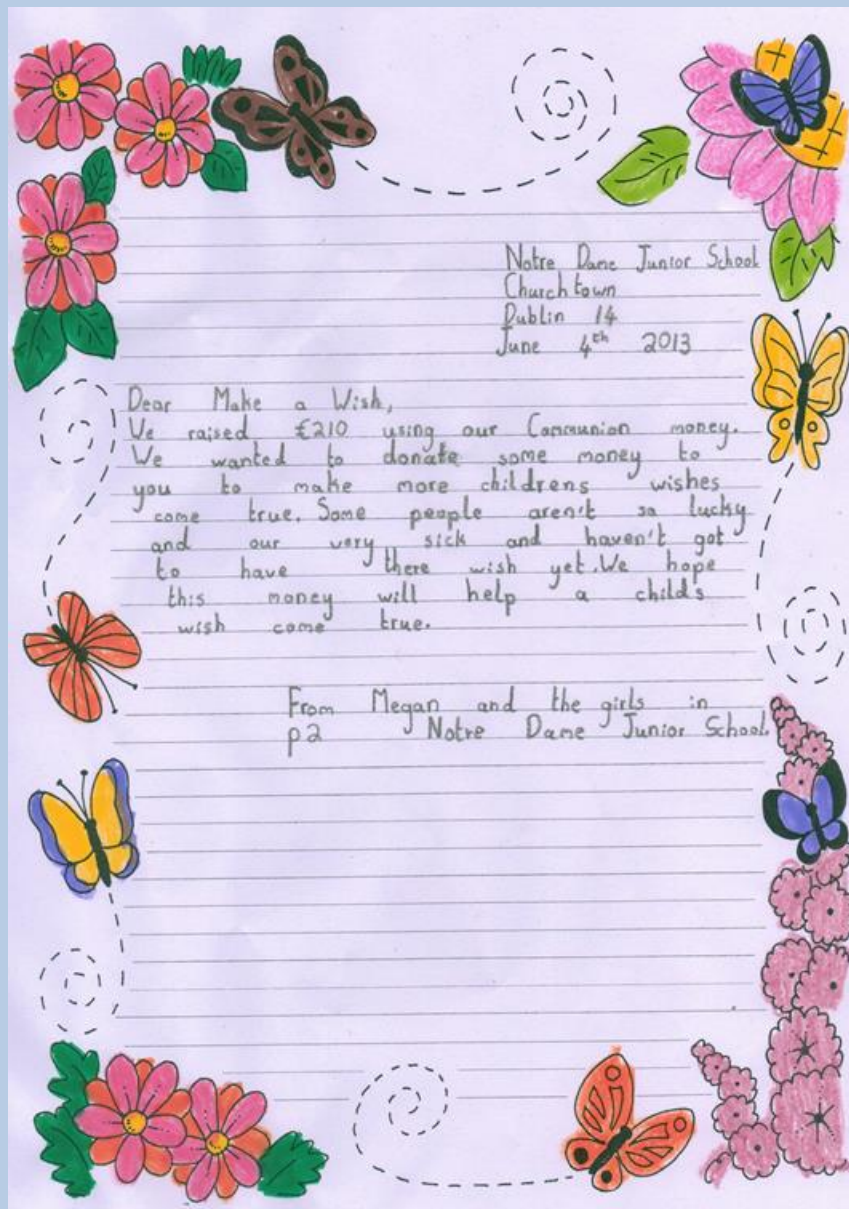 Notre Dame Junior School
Churchtown
Dublin 14
June 4th 2013
Dear Make a Wish,
We raised £210 using our Communion money.
We wanted to donate some money to
you to make more childrens wishes
come true. Some people aren't so lucky
and our very sick and haven't got
to have there wish yet. We hope
this money will help a childs
wish come true.
From Megan and the girls in
p2 Notre Dame Junior School.